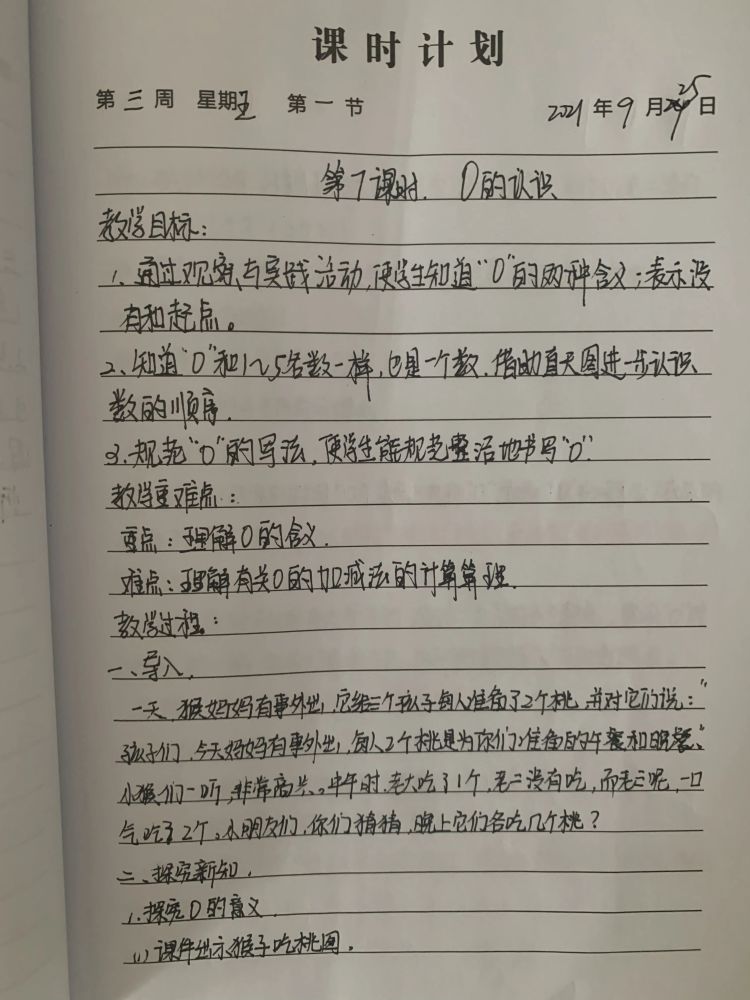 课时计划
第三周 星期五 第一节 2021年9月25日
第7课时. 0的认识
教学目标：
1、通过观察与实践活动,使学生知道“0”的两种含义；表示没
有和起点。
2、知道“0”和1~5各数一样,也是一个数.借助直尺图进一步认识
数的顺序.
3.规范“0”的写法,使学生能规范整洁地书写“0”.
教学重难点：
重点：理解0的含义.
难点：理解有关0的加减法的计算算理.
教学过程：
一、导入.
一天,猴妈妈有事外出,它给三个孩子每人准备了2个桃,并对它们说：“
孩子们,今天妈妈有事外出,每人2个桃是为你们准备的午餐和晚餐.”
小猴们一听,非常高兴。中午时,老大吃了1个,老二没有吃,而老三呢,一口
气吃了2个。小朋友们,你们猜猜,晚上它们各吃几个桃？
二、探究新知.
1.探究0的意义.
(1)课件出示猴子吃桃图.